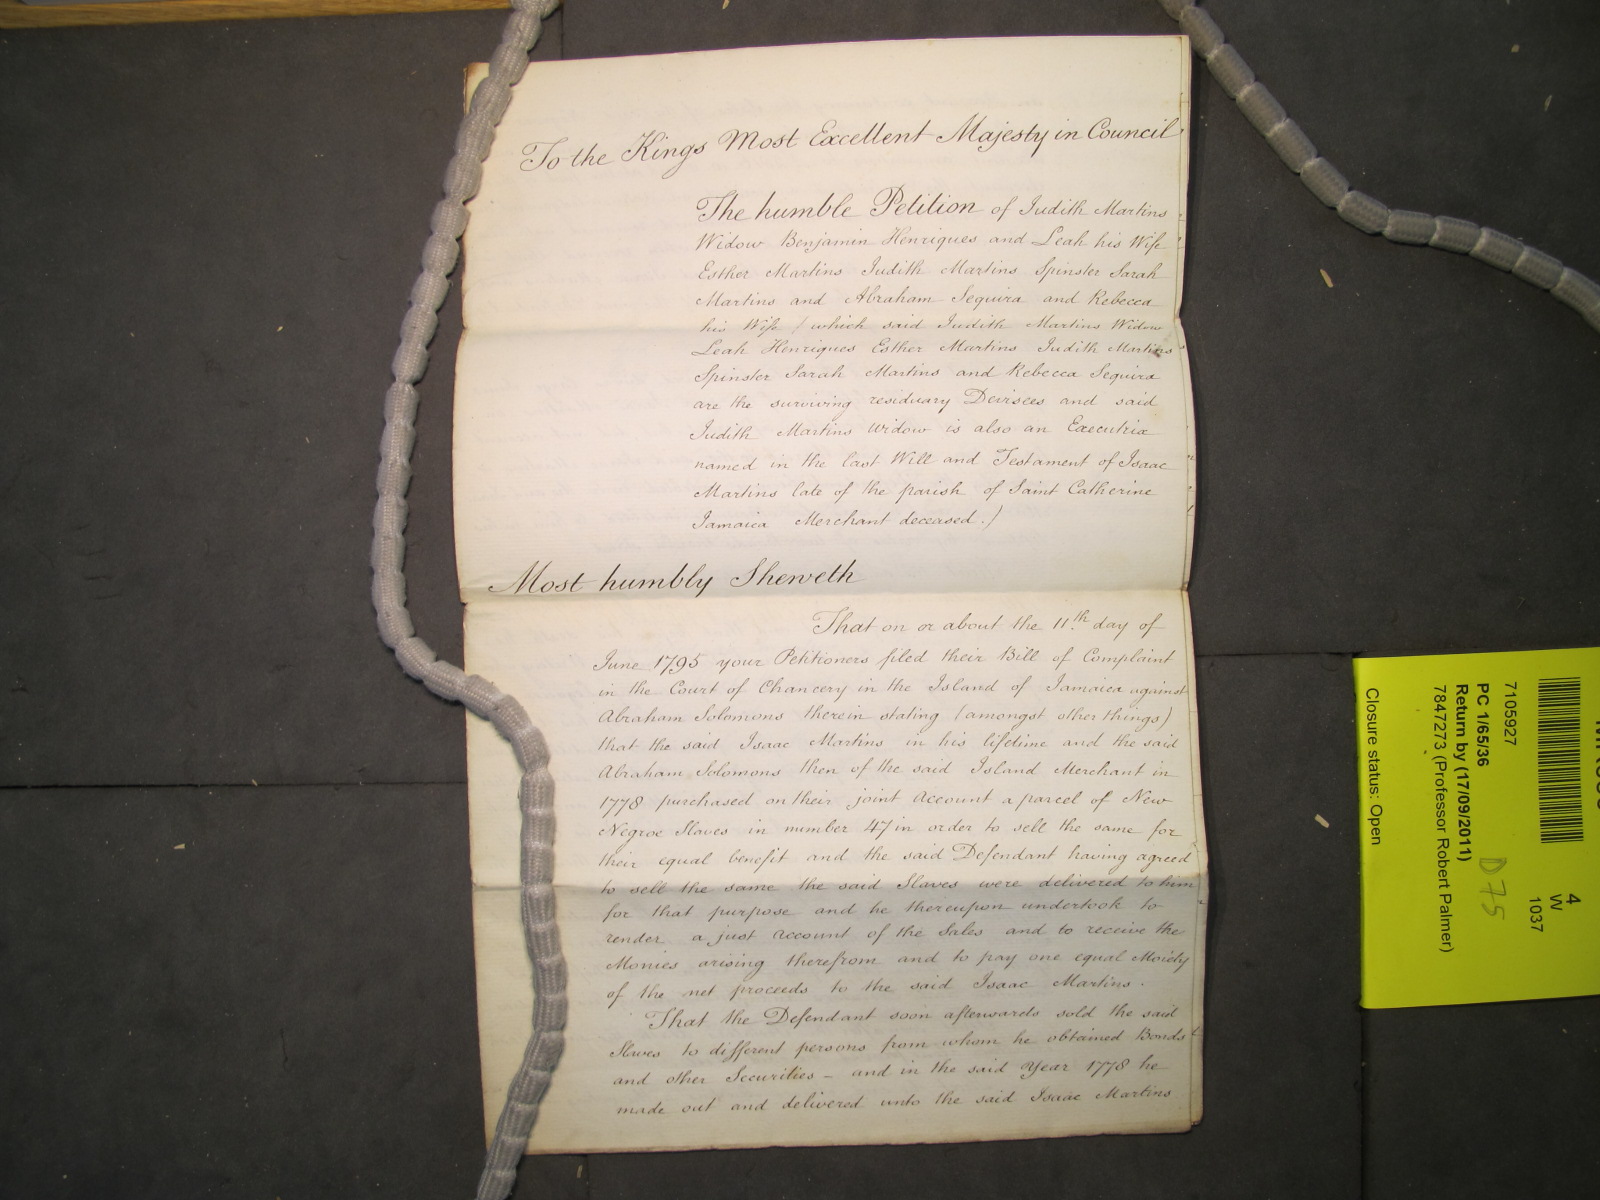 To the Kings Most Excellent Majesty in Council
The humble Petition of Judith Martins
Widow Benjamin Henriques and Leah his Wife
Esther Martins Judith Martins Spinster Sarah
Martins and Abraham Sequira and Rebecca
his Wife (which said Judith Martins Widow
Leah Henriques Esther Martins Judith Martins
Spinster Sarah Martins and Rebecca Sequira
are the surviving residuary Devisees and said
Judith Martins Widow is also an Executrix
named in the last Will and Testament of Isaac
Martins late of the parish of Saint Catherine
Jamaica Merchant deceased.)
Most humbly Sheweth
That on or about the 11th day of
June 1795 your Petitioners filed their Bill of Complaint
in the Court of Chancery in the Island of Jamaica against
Abraham Solomons therein stating (amongst other things)
that the said Isaac Martins in his lifetime and the said
Abraham Solomons then of the said Island Merchant in
1778 purchased on their joint Account a parcel of New
Negroe Slaves in number 47 in order to sell the same for
their equal benefit and the said Defendant having agreed
to sell the same the said Slaves were delivered to him
for that purpose and he thereupon undertook to
render a just Account of the Sales and to receive the
Monies arising therefrom and to pay one equal Moiety
of the net proceeds to the said Isaac Martins.
That the Defendant soon afterwards sold the said
Slaves to different persons from whom he obtained Bonds
and other Securities – and in the said Year 1778 he
made out and delivered unto the said Isaac Martins
4
W
1037
7105927
PC 1/65/36
Return by (17/09/2011)
7847273 (Professor Robert Palmer)
D 75
Closure status: Open